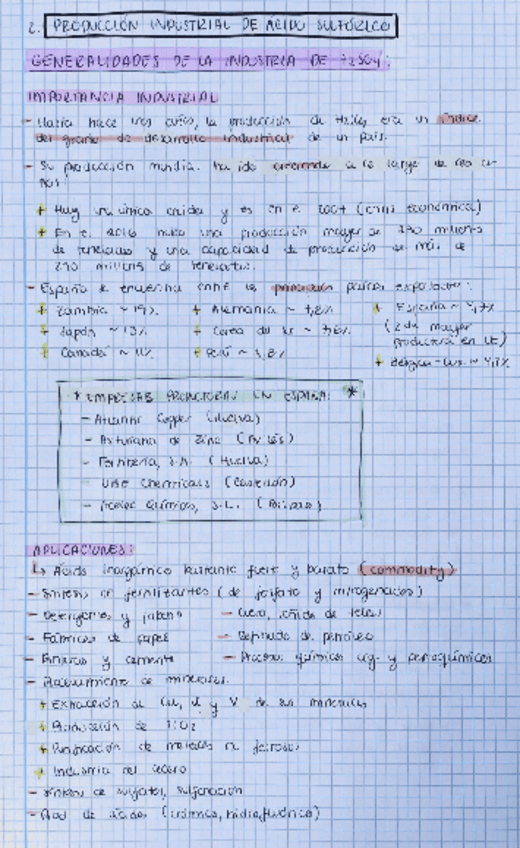 2. PRODUCCIÓN INDUSTRIAL DE ÁCIDO SULFÚRICO
GENERALIDADES DE LA INDUSTRIA DE H2SO4:
IMPORTANCIA INDUSTRIAL
- Hasta hace unos años, la producción de H2SO4 era un índice
del grado de desarrollo industrial de un país.
- Su producción mundial ha ido creciendo a lo largo de los a-
ños:
+ Hay una única caída y es en el 2009 (crisis económica)
+ En el 2016 hubo una producción mayor de 230 millones
de toneladas y una capacidad de producción de más de
270 millones de toneladas.
- España se encuentra entre los principales mayores países exportadores:
+ Zambia ~ 19% + Alemania ~ 7,8% + España ~ 4,7%
+ Japón ~ 13% + Corea del Sur ~ 7,6% (2do mayor
productor en UE)
+ Canadá ~ 11% + Perú ~ 5,8% + Bélgica-Lux. ~ 4,7%
* EMPRESAS PRODUCTORAS EN ESPAÑA: *
- Atlantic Copper (Huelva)
- Asturiana de Zinc (Avilés)
- Fertiberia, S.A. (Huelva)
- UBE Chemicals (Castellón)
- Químicos, S.L. (Bilbao)
APLICACIONES:
↳ Ácido inorgánico bastante fuerte y barato (commodity)
- Síntesis de fertilizantes (de fosfato y nitrogenados)
- Detergentes y jabones - Cuero, teñido de telas
- Fábricas de papel - Refinado de petróleo
- Pinturas y cemento - Procesos químicos org. y petroquímicos
- Procesamiento de minerales:
+ Extracción de Cu, U y V de sus minerales
+ Producción de TiO2
+ Purificación de metales no ferrosos
+ Industria del acero
- Síntesis de sulfatos, sulfonación
- Prod. de ácidos (crómico, hidrofluórico)